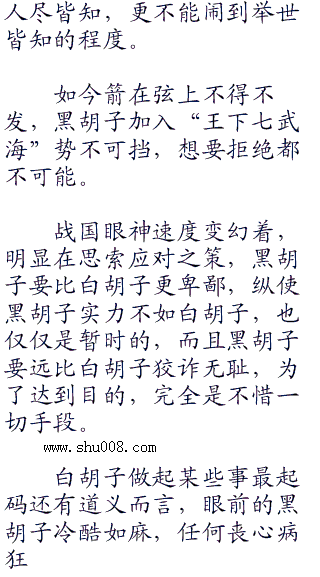 人尽皆知，更不能闹到举世
皆知的程度。
如今箭在弦上不得不
发，黑胡子加入“王下七武
海”势不可挡，想要拒绝都
不可能。
战国眼神速度变幻着，
明显在思索应对之策，黑胡
子要比白胡子更卑鄙，纵使
黑胡子实力不如白胡子，也
仅仅是暂时的，而且黑胡子
要远比白胡子狡诈无耻，为
了达到目的，完全是不惜一
切手段。
www.shu008.com
白胡子做起某些事最起
码还有道义而言，眼前的黑
胡子冷酷如麻，任何丧心病
狂